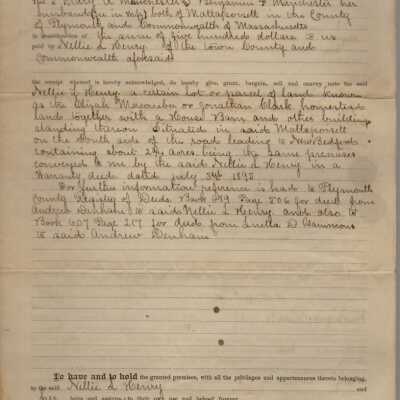 Mary A Manchester & Benjamin F Manchester her
husband in right both of Mattapoisett in the County
of Plymouth and Commonwealth of Massachusetts
in consideration of the sum of five hundred dollars to us
paid by Nellie L Henry of the town County and
Commonwealth aforesaid
the receipt whereof is hereby acknowledged, do hereby give, grant, bargain, sell and convey unto the said
Nellie L Henry a certain lot or parcel of land known
as the Elijah or Jonathan Clark homestead
land together with a House Barn and other buildings
standing thereon Situated in said Mattapoisett
on the South side of the road leading to New Bedford
containing about acres being the same premises
conveyed to me by the said Nellie L Henry in a
Warranty deed dated July
For further information reference is had to Plymouth
County Registry of Deeds Book Page 506 for deed from
Andrew Denham to said Nellie L Henry and also to
Book 607 Page 217 for deed from Luella D Hammond
to said Andrew Denham
To have and to hold the granted premises, with all the privileges and appurtenances thereto belonging,
to the said Nellie L Henry and
heirs and assigns to their own use and behoof forever